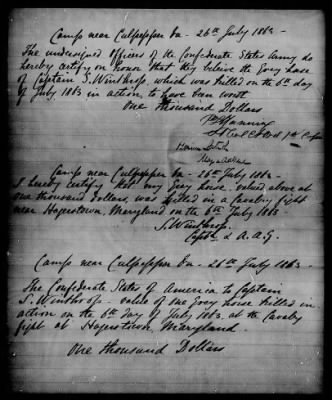 Camp near Culpepper Va - 26th July 1863 -
The undersigned Officers of the Confederate States Army do
hereby certify on honor that they believe the Grey horse
of Captain S. Winthrop, which was killed on the 6th day
of July 1863 in action, to have been worth
One thousand Dollars
P. Manning
Lt Col 1st Corps
Camp near Culpepper Va - 26th July 1863.
I hereby certify that my Grey horse valued above at
one thousand dollars, was killed in a Cavalry fight
near Hagerstown, Maryland on the 6th July 1863.
S. Winthrop
Captn & A. A. G.
Camp near Culpepper Va - 26th July 1863
The Confederate States of America to Captain
S. Winthrop - value of one Grey horse killed in
action on the 6th day of July 1863 at the Cavalry
fight at Hagerstown, Maryland.
One thousand Dollars